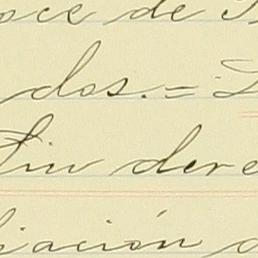 oce de
dos.=
Sin dere
iación